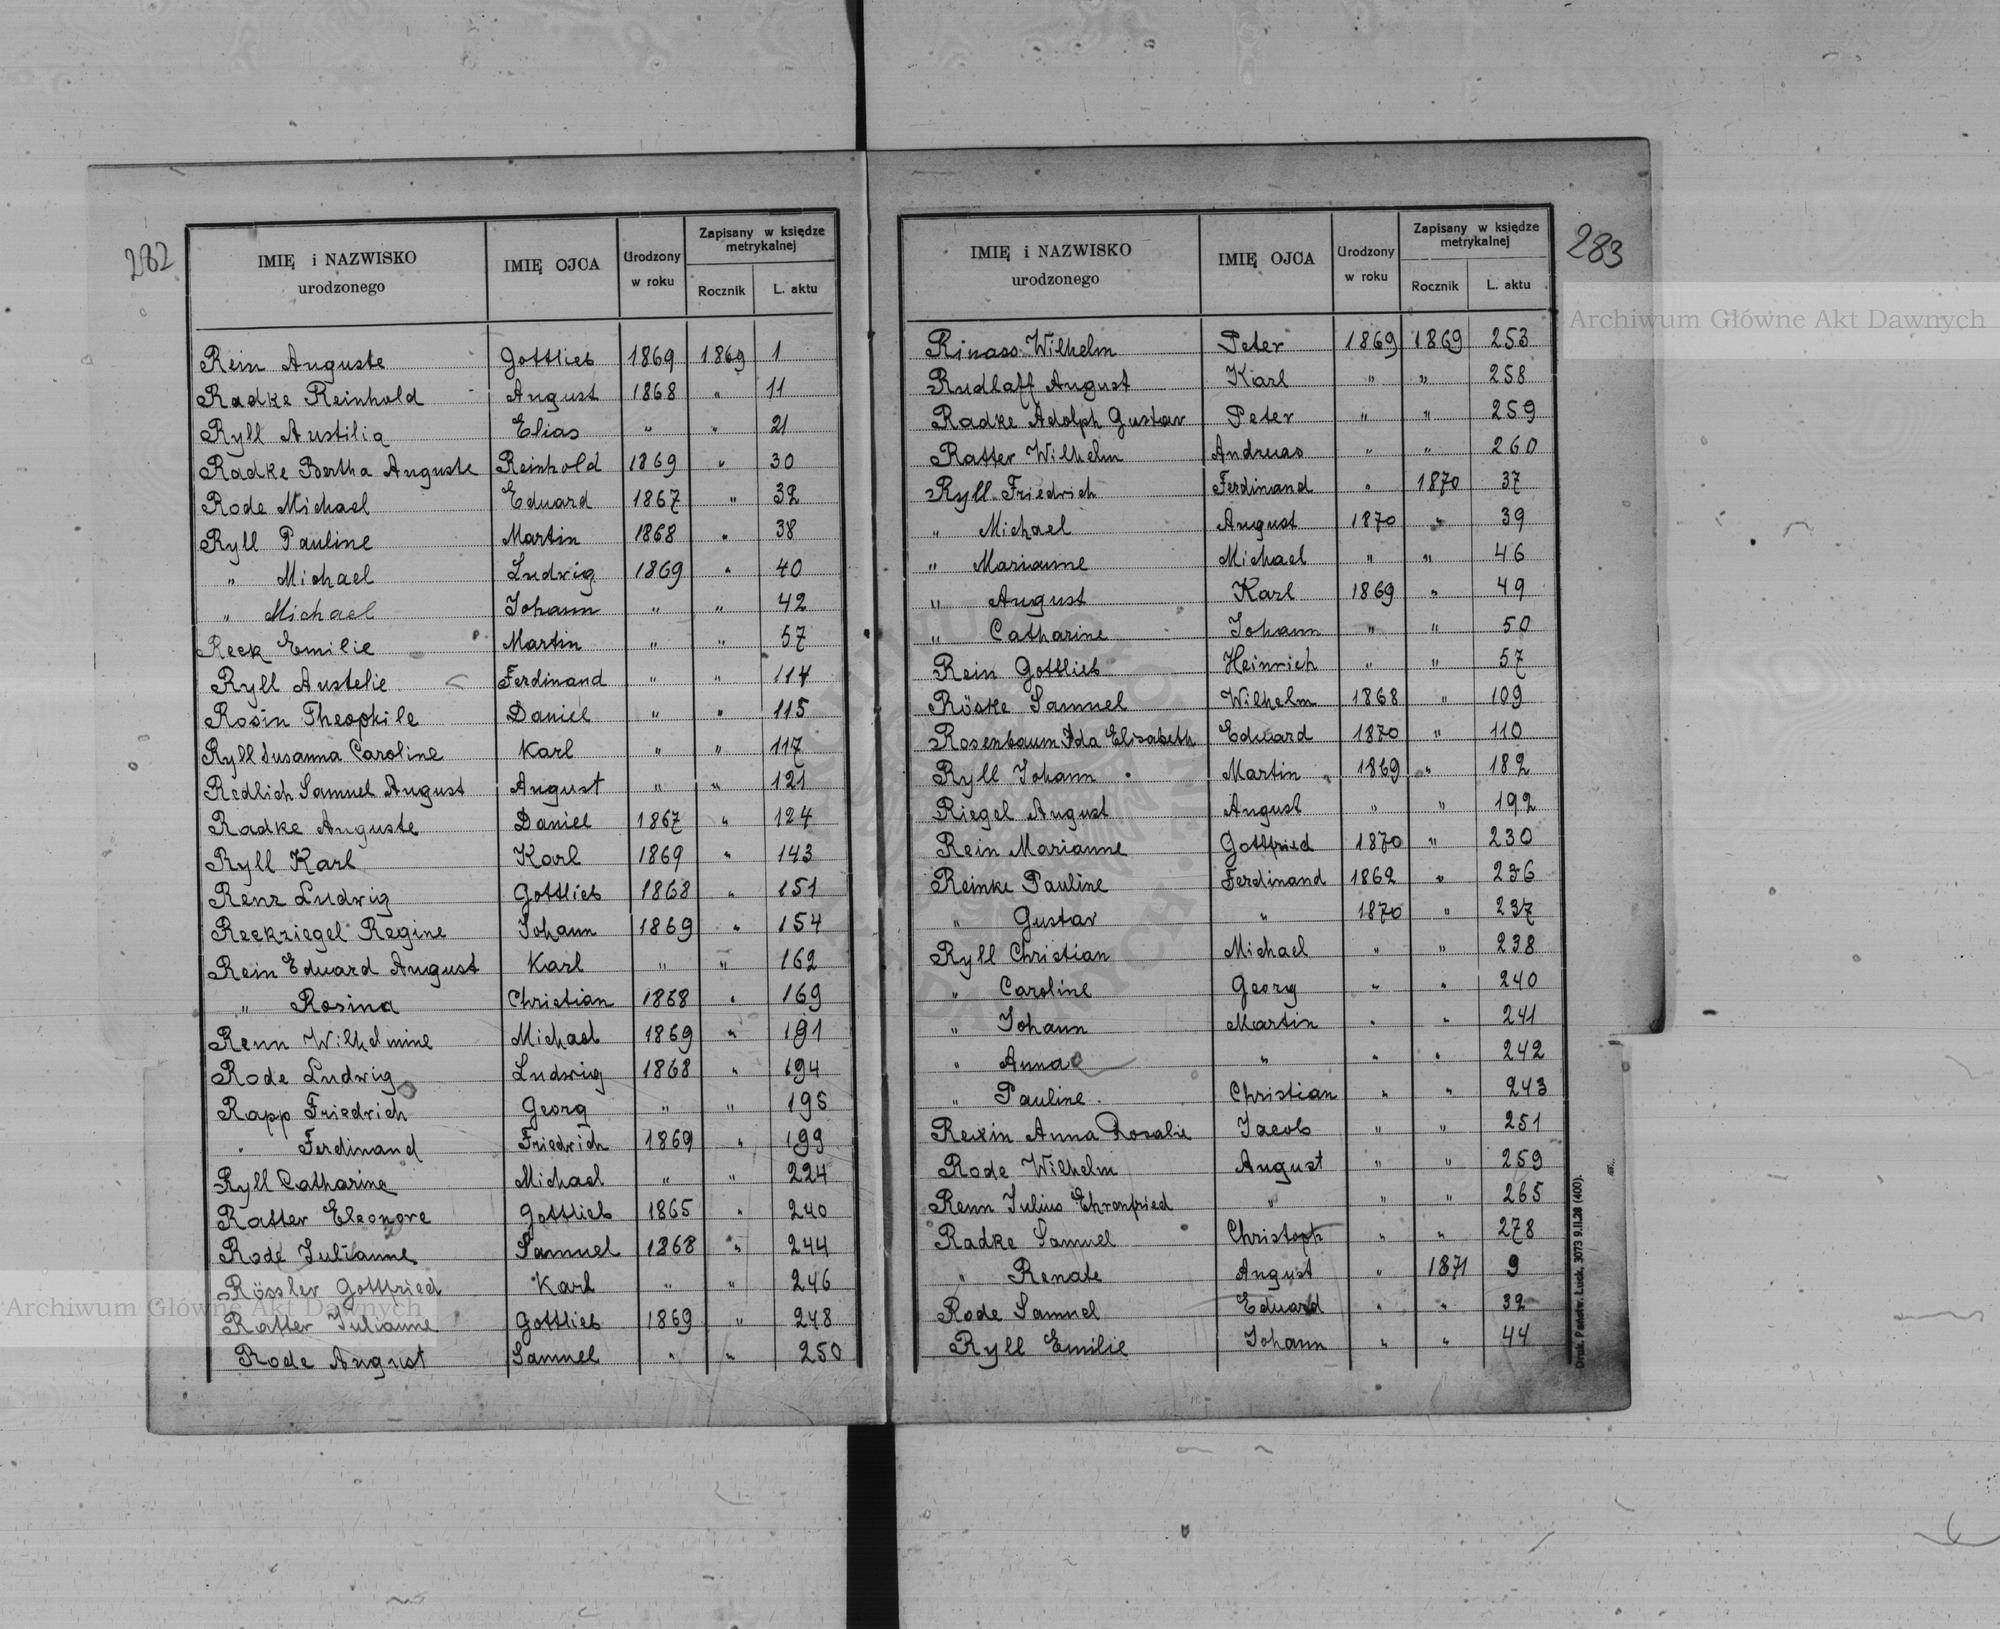 282
IMIĘ i NAZWISKO urodzonego | IMIĘ OJCA | Urodzony w roku | Zapisany w księdze metrykalnej | Rocznik | L. aktu
Rein Auguste | Gottlieb | 1869 | 1869 | 1
Radke Reinhold | August | 1868 | " | 11
Ryll Austilia | Elias | " | " | 21
Radke Bertha Auguste | Reinhold | 1869 | " | 30
Rode Michael | Eduard | 1867 | " | 32
Ryll Pauline | Martin | 1868 | " | 38
" Michael | Ludwig | 1869 | " | 40
" Michael | Johann | " | " | 42
Reck Emilie | Martin | " | " | 57
Ryll Austelie | Ferdinand | " | " | 114
Rosin Theophile | Daniel | " | " | 115
Ryll Susanna Caroline | Karl | " | " | 117
Redlich Samuel August | August | " | " | 121
Radke Auguste | Daniel | 1867 | " | 124
Ryll Karl | Karl | 1869 | " | 143
Renz Ludwig | Gottlieb | 1868 | " | 151
Reckziegel Regine | Johann | 1869 | " | 154
Rein Eduard August | Karl | " | " | 162
" Rosina | Christian | 1868 | " | 169
Renn Wilhelmine | Michael | 1869 | " | 191
Rode Ludwig | Ludwig | 1868 | " | 194
Rapp Friedrich | Georg | " | " | 195
" Ferdinand | Friedrich | 1869 | " | 199
Ryll Catharine | Michael | " | " | 224
Ratter Eleonore | Gottlieb | 1865 | " | 240
Rode Julianne | Samuel | 1868 | " | 244
Rössler Gottfried | Karl | " | " | 246
Ratter Julianne | Gottlieb | 1869 | " | 248
Rode August | Samuel | " | " | 250
283
IMIĘ i NAZWISKO urodzonego | IMIĘ OJCA | Urodzony w roku | Zapisany w księdze metrykalnej | Rocznik | L. aktu
Rinass Wilhelm | Peter | 1869 | 1869 | 253
Rudlaff August | Karl | " | " | 258
Radke Adolph Gustav | Peter | " | " | 259
Ratter Wilhelm | Andreas | " | " | 260
Ryll Friedrich | Ferdinand | " | 1870 | 37
" Michael | August | 1870 | " | 39
" Marianne | Michael | " | " | 46
" August | Karl | 1869 | " | 49
" Catharine | Johann | " | " | 50
Rein Gottlieb | Heinrich | " | " | 57
Röske Samuel | Wilhelm | 1868 | " | 109
Rosenbaum Ida Elisabeth | Eduard | 1870 | " | 110
Ryll Johann | Martin | 1869 | " | 182
Riegel August | August | " | " | 192
Rein Marianne | Gottfried | 1870 | " | 230
Reinke Pauline | Ferdinand | 1862 | " | 236
" Gustav | " | 1870 | " | 237
Ryll Christian | Michael | " | " | 238
" Caroline | Georg | " | " | 240
" Johann | Martin | " | " | 241
" Anna | " | " | " | 242
" Pauline | Christian | " | " | 243
Rexin Anna Rosalie | Jacob | " | " | 251
Rode Wilhelm | August | " | " | 259
Renn Julius Ehrenfried | " | " | " | 265
Radke Samuel | Christoph | " | " | 278
" Renate | August | " | 1871 | 9
Rode Samuel | Eduard | " | " | 32
Ryll Emilie | Johann | " | " | 44
Druk. Państw. Łuck, 3073 9.II.28 (400).
Archiwum Główne Akt Dawnych
Archiwum Główne Akt Dawnych